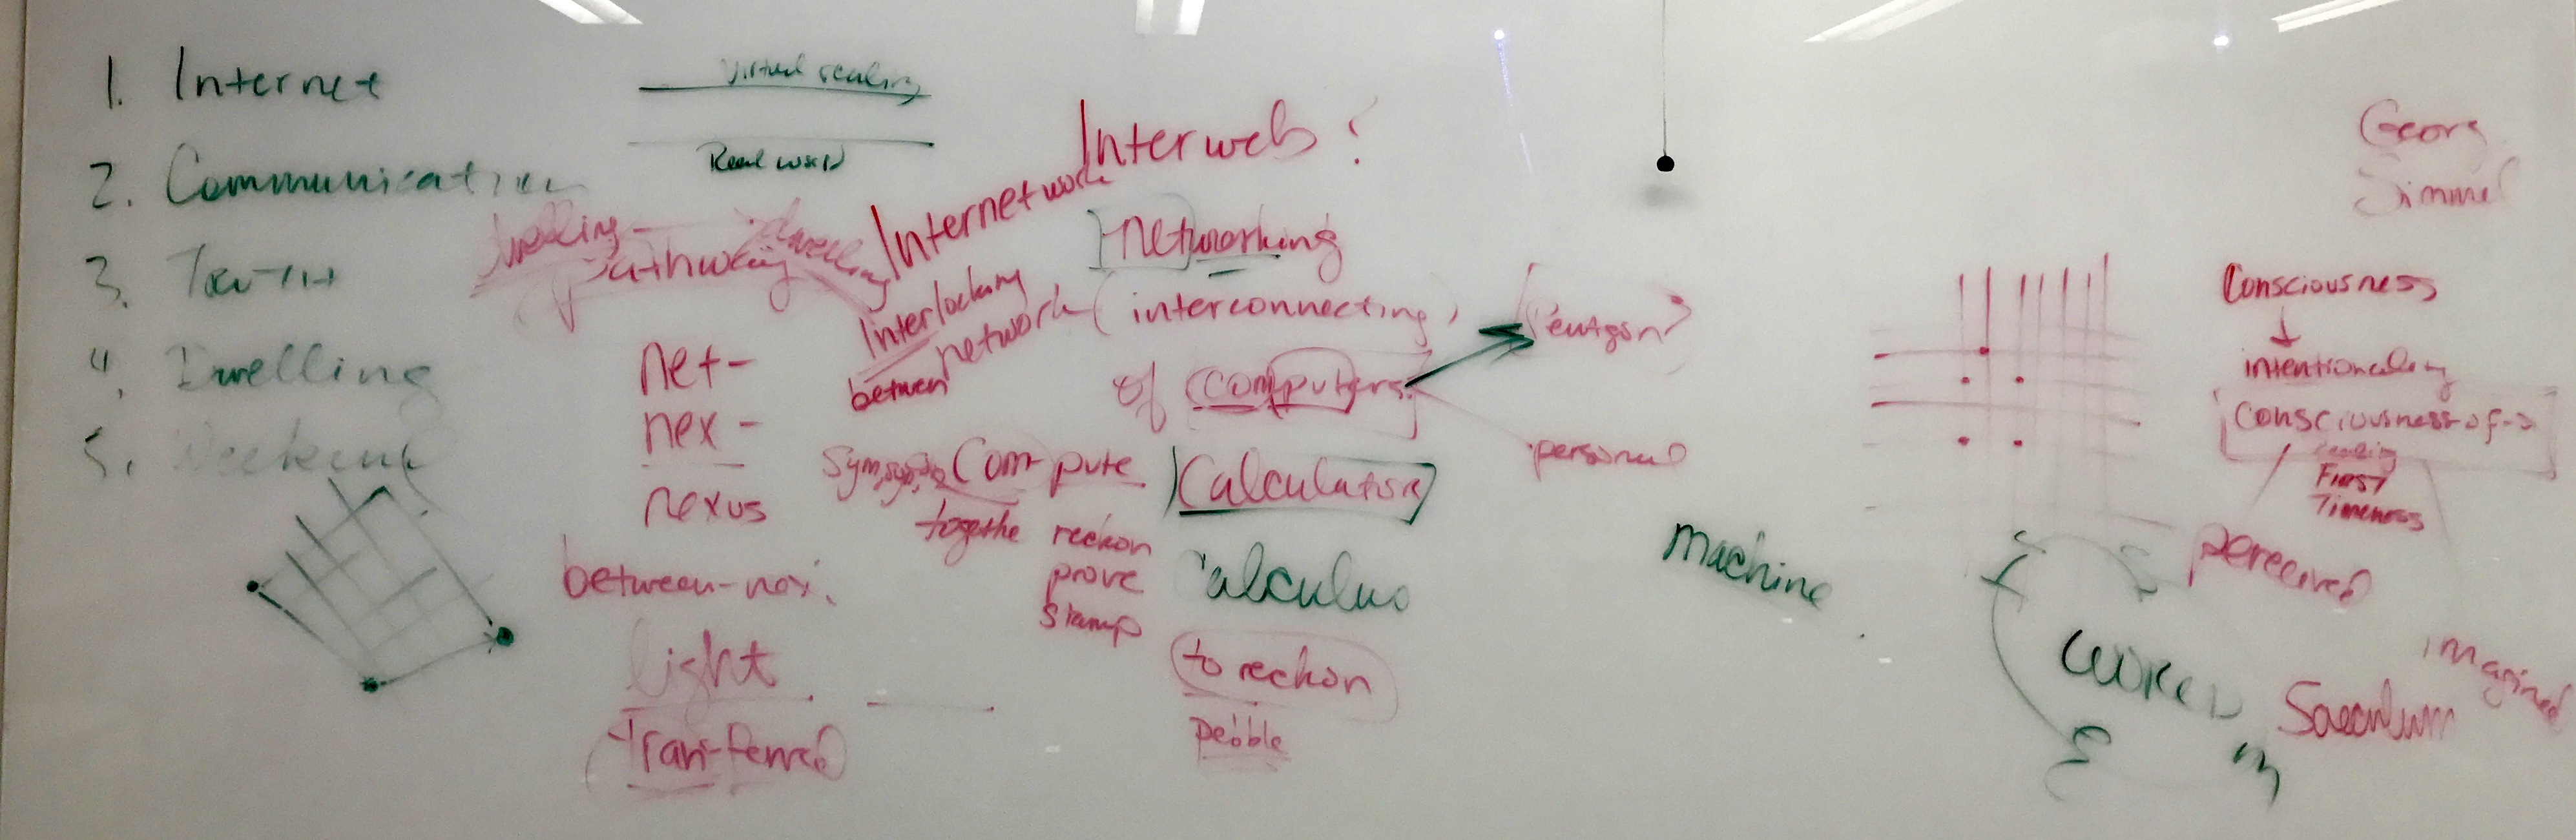 1. Internet
2. Communication
3. Truth
4. Dwelling
5. Weekend
Virtual reality
Real world
dwelling
pathway
net-
nex-
nexus
between-nex.
light
Tran-ferred
Interweb?
Internetwork
Interlocking
network
between
networking
(interconnecting)
of computers
Compute
togethe
reckon
prove
stamp
Calculation
Calculus
to reckon
pebble
Pentagon?
personal
machine
Georg
Simmel
Consciousness
intentionality
Consciousness-of-
First
Timeness
perceived
imagined
World
Saeculum